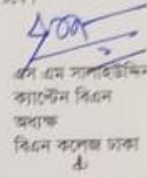 এম এম সালাহউদ্দিন
ক্যাপ্টেন বিএন
অধ্যক্ষ
বিএন কলেজ ঢাকা